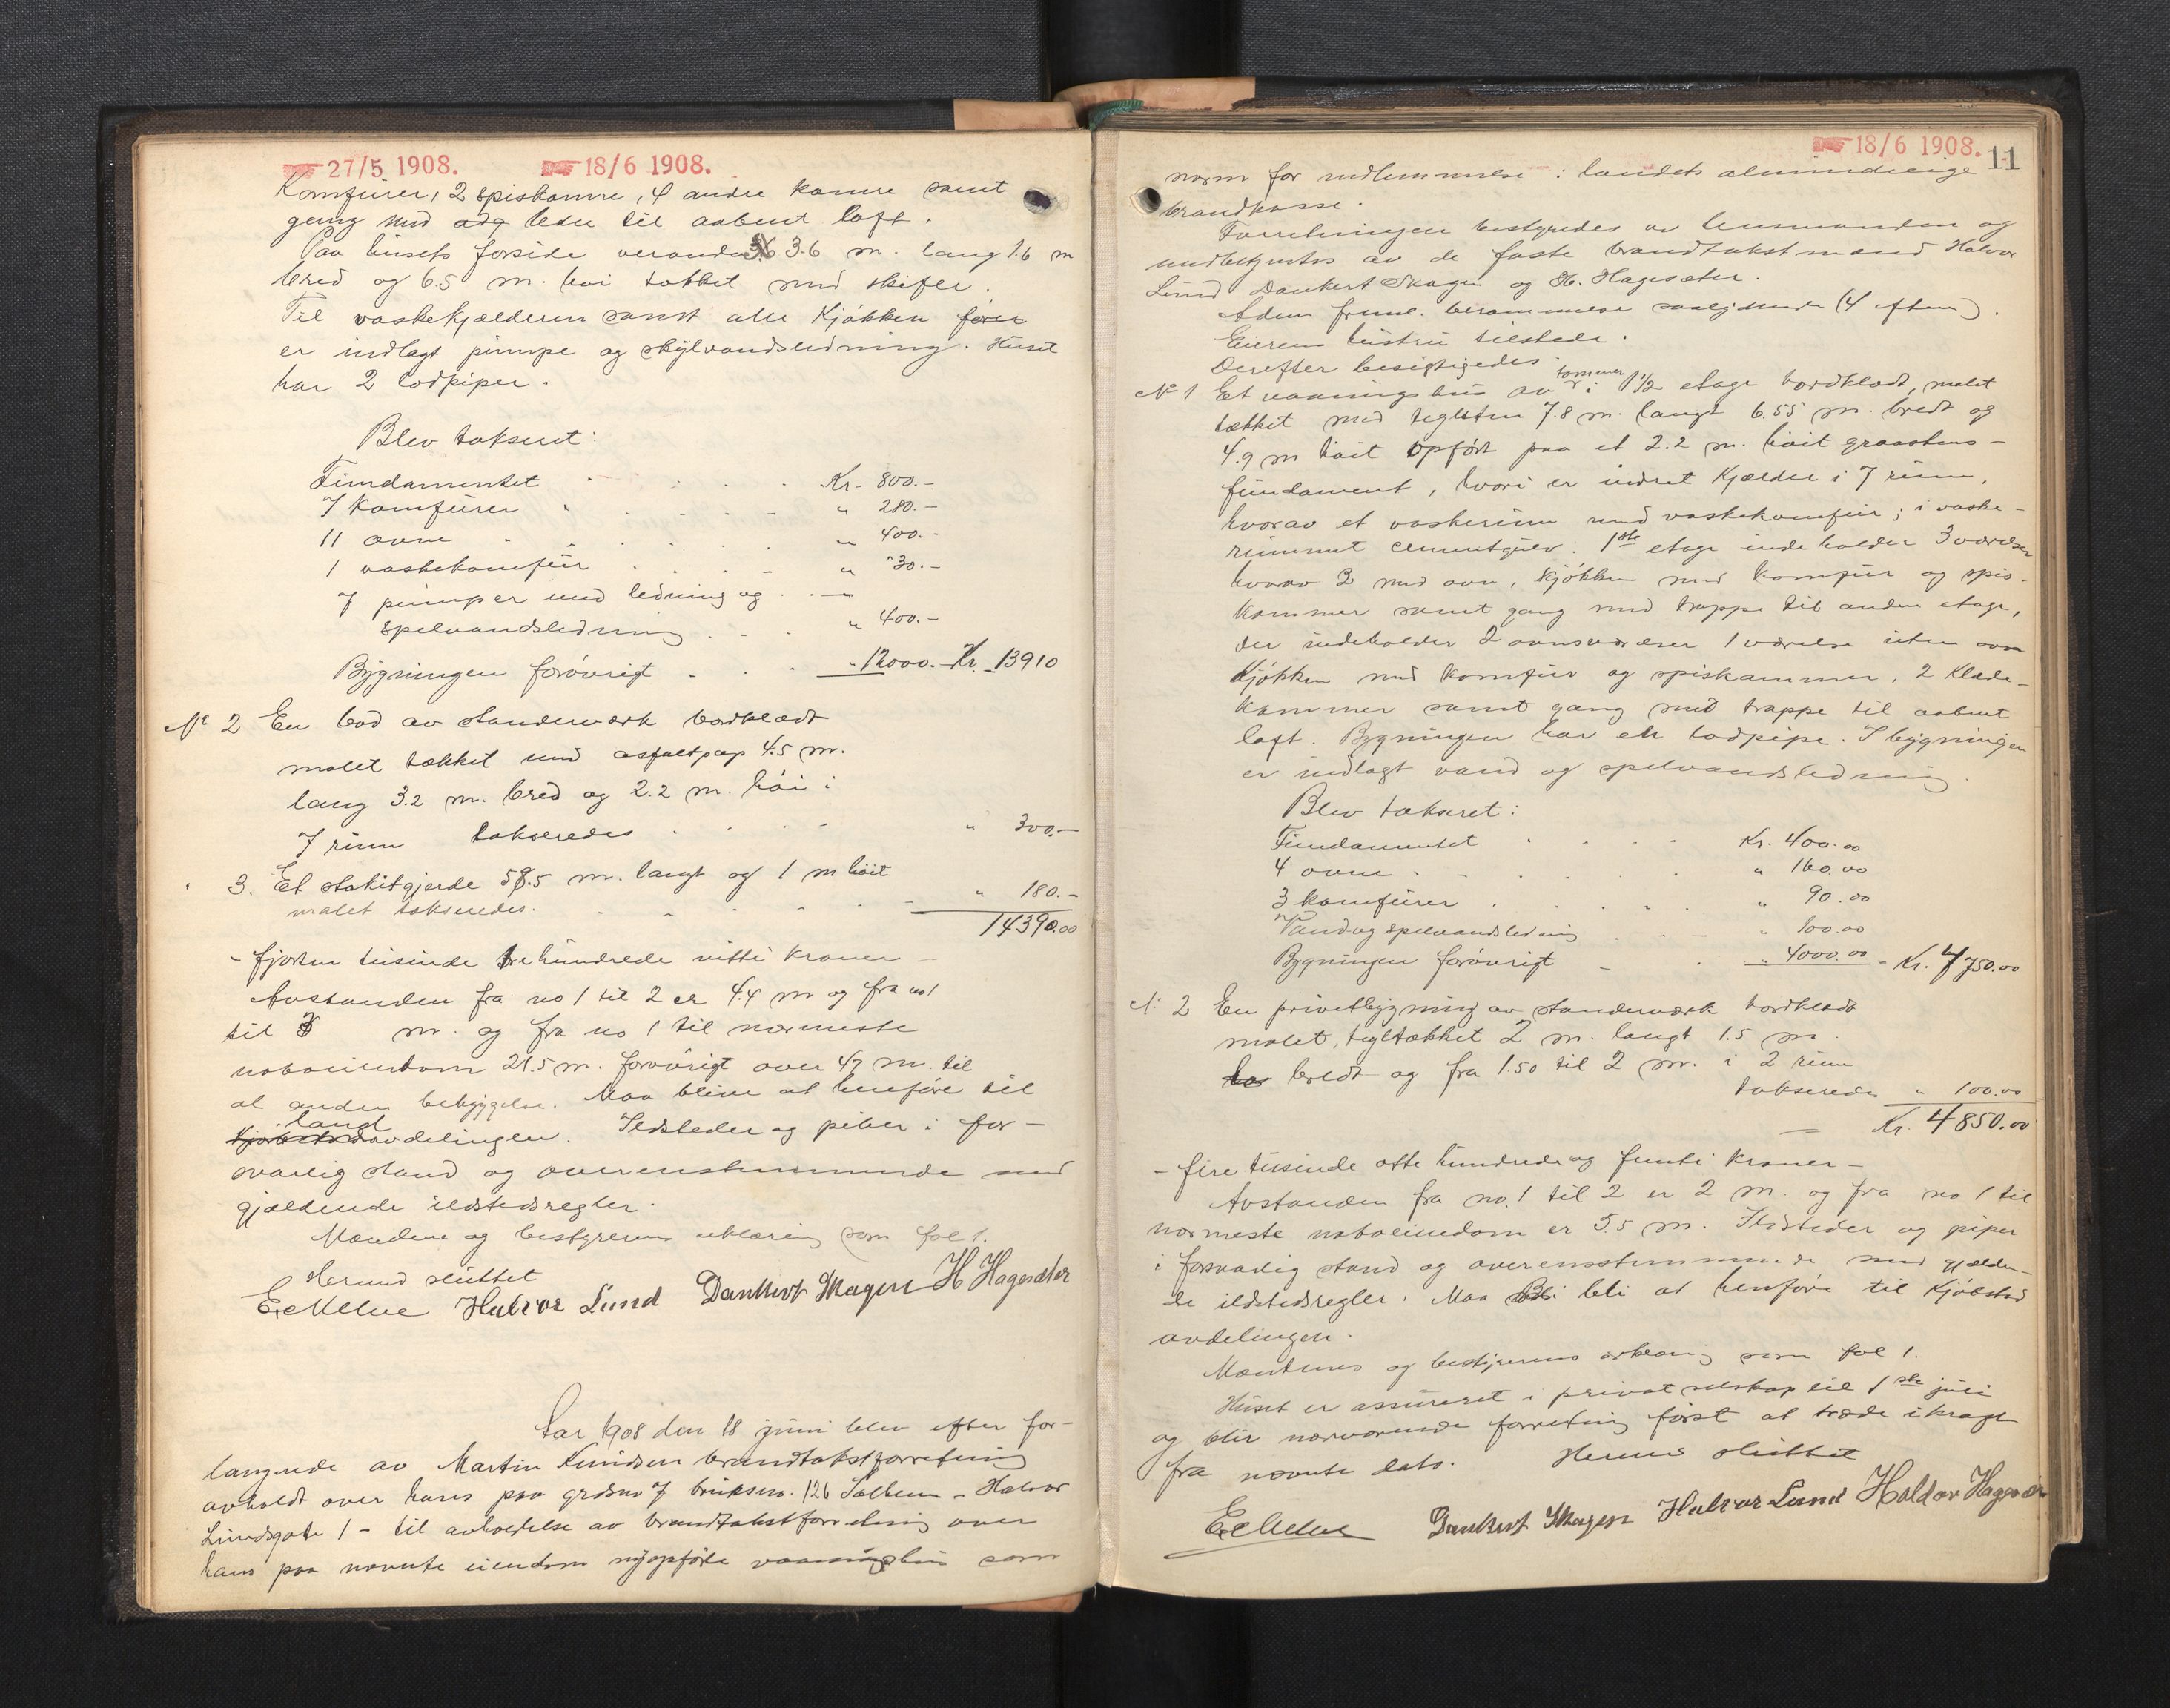 27/5 1908. 18/6 1908.
Komfurer, 2 spiskamre, 4 andre kamre samt
gang med adg leder til aabent loft.
Paa husets forside veranda 3.6 m. lang 1.6 m
bred og 6.5 m. høi tækket med skifer.
Til vaskekjælderen samt alle Kjøkken fører
er indlagt pumpe og skylvandsledning. Huset
har 2 lodpiper.
Blev takseret:
Fundamentet Kr. 800.-
7 Komfurer " 280.-
11 ovne " 400.-
1 vaskekomfur " 30.-
7 pumper med ledning og
spelvandsledning " 400.-
Bygningen forøvrigt " 12000.- Kr. 13910
No 2 En bod av standerværk bordklædt
malet tækket med asfaltpap 4.5 m.
lang 3.2 m. bred og 2.2 m. høi i
7 rum takseredes " 300.-
" 3. Et stakitgjerde 57.5 m. langt og 1 m høit
malet takseredes. " 180.-
14390.00
- fjorten tusinde trehundrede nitti kroner -
Avstanden fra no 1 til 2 er 4.4 m og fra no 1
til 3 m. og fra no 1 til nærmeste
naboeiendom 21.5 m. forøvrigt over 47 m. til
al anden bebyggelse. Maa blive at henføre til
land
Kjøbstadavdelingen. Ildsteder og piber i for-
svarlig stand og overensstemmende med
gjældende ildstedsregler.
Mændene og bestyrerens erklæring som fol 1.
Hermed sluttet
Halvor Lund Dankert Skagen H Hagesæter
Aar 1908 den 18 juni blev efter for-
langende av Martin Knudsen brandtakstforretning
avholdt over hans paa grdsno 7 bruksno. 126 Solheim - Halvor
Lundsgate 1 - til avholdelse av brandtakstforretning over
hans paa nævnte eiendom nyopførte vaaningshus som
18/6 1908. 11
norm for indlemmelse i landets almindelige
brandkasse.
Forretningen bestyredes av lensmanden og
medbetjentes av de faste brandtakstmænd Halvor
Lund Dankert Skagen og H. Hagesæter.
Adm freml. berammelse saalydende (4 eftm).
Eierens hustru tilstede.
Derefter besigtigedes:
No 1 Et vaaningshus av tømmer i 1 1/2 etage bordklædt, malet
tækket med teglsten 7.8 m. langt 6.55 m. bredt og
4.9 m høit opført paa et 2.2 m. høit graastens-
fundament, hvori er indret Kjælder i 7 rum,
hvorav et vaskerum med vaskekomfur; i vaske-
rummet cementgulv. 1ste etage indeholder 3 værelser
hvorav 2 med ovn, Kjøkken med komfur og spis-
kammer samt gang med trappe til anden etage,
der indeholder 2 ovnsværelser 1 værelse uten ovn
Kjøkken med komfur og spiskammer, 2 Klæde-
kammer samt gang med trappe til aabent
loft. Bygningen har en lodpipe. I bygningen
er indlagt vand og spelvandsledning.
Blev takseret:
Fundamentet Kr. 400.00
4 ovne " 160.00
3 komfurer " 90.00
Vand og spelvandsledning " 100.00
Bygningen forøvrigt " 4000.00 - Kr. 4750.00
No 2 En privetbygning av standerværk bordklædt
malet, tegltækket 2 m. langt 1.5 m.
bredt og fra 1.50 til 2 m. i 2 rum
takseredes " 100.00
Kr. 4850.00
- fire tusinde otte hundrede og femti kroner -
Avstanden fra no. 1 til 2 er 2 m. og fra no 1 til
nærmeste naboeiendom er 5.5 m. Ildsteder og piper
i forsvarlig stand og overensstemmende med gjælden-
de ildstedsregler. Maa bli at henføre til Kjøbstad
avdelingen.
Mændenes og bestyrerens erklæring som fol 1.
Huset er assureret i privat selskap til 1ste juli
og blir nærværende forretning først at træde ikraft
fra nævnte dato. Hermed sluttet
Dankert Skagen Halvor Lund Haldor Hagesæter